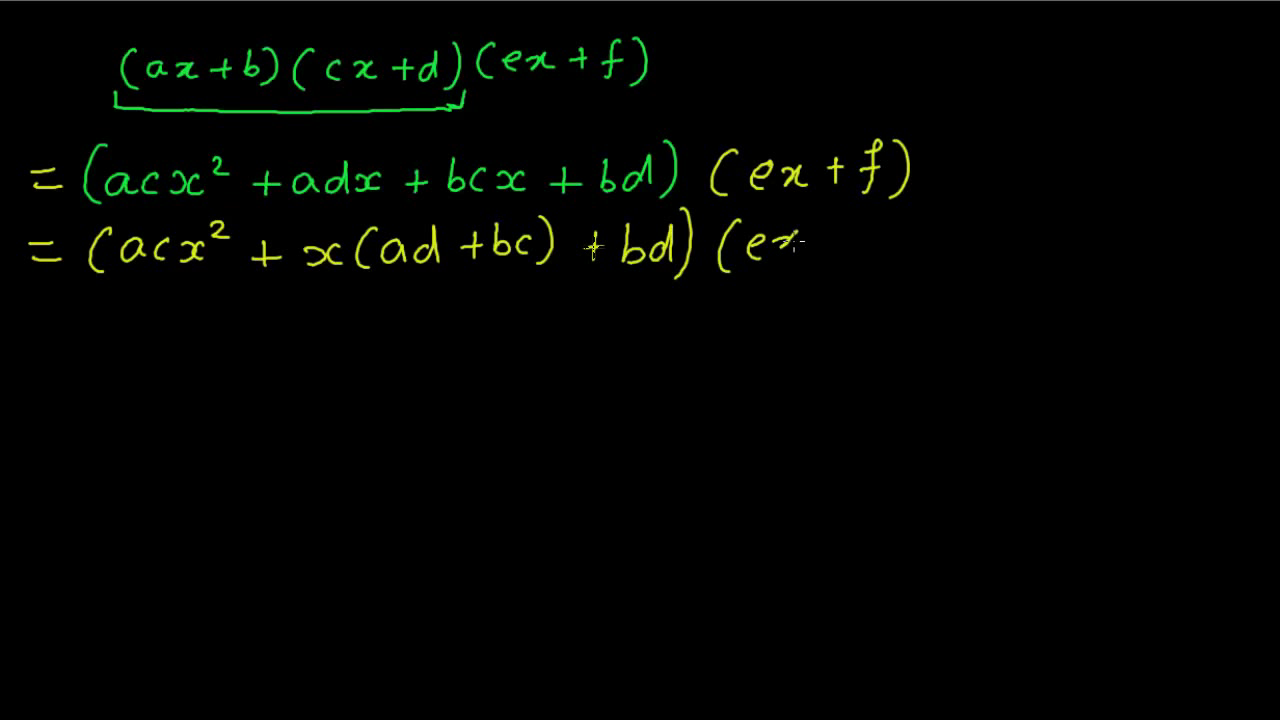 (ax+b)(cx+d)(ex+f)
=(acx²+adx+bcx+bd)(ex+f)
=(acx²+x(ad+bc)+bd)(ex